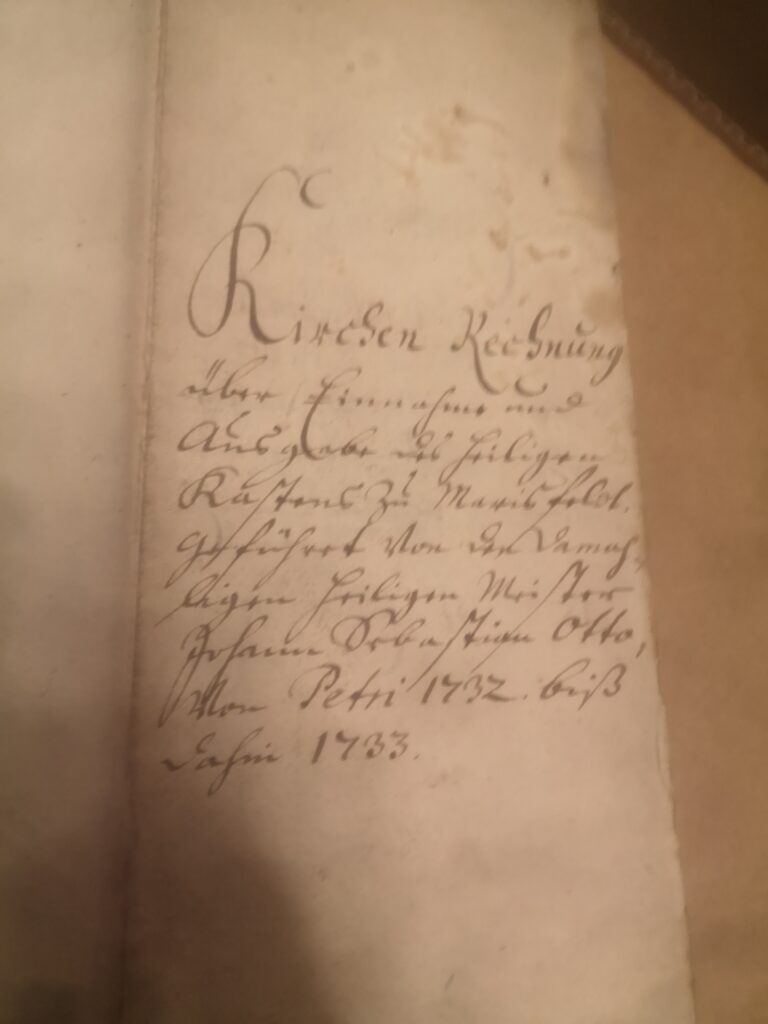 Kirchen Rechnung
über Einnahme und
Ausgabe des heiligen
Kastens zu Marisfeld.
geführet von den damah-
ligen Heiligen Meister
Johann Sebastian Otto,
Von Petri 1732. biß
dahin 1733.